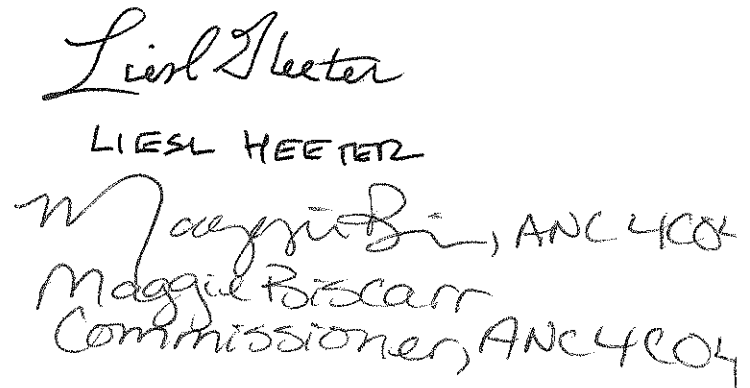 Liesl Heeter
LIESL HEETER
Maggie Bi, ANC 4C04
Maggie Biscarr
Commissioner, ANC4C04